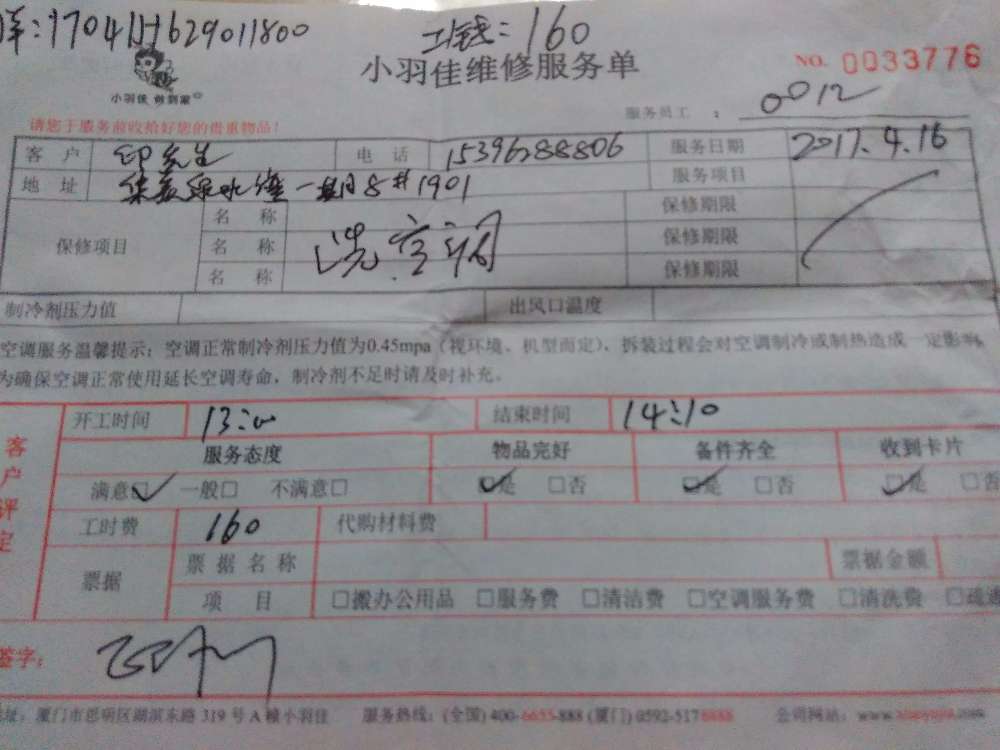 17041H1629011800 工钱:160
小羽佳 做到家
小羽佳维修服务单
NO. 0033776
服务员工: 0012
请您于服务前收拾好您的贵重物品!
客户 印先生 电话 15396288806 服务日期 2017.4.16
地址 一期8#1901 服务项目
保修项目 名称 洗空调 保修期限
名称 保修期限
名称 保修期限
制冷剂压力值 出风口温度
空调服务温馨提示:空调正常制冷剂压力值为0.45mpa(视环境、机型而定),拆装过程会对空调制冷或制热造成一定影响,
为确保空调正常使用延长空调寿命,制冷剂不足时请及时补充。
客户评定
开工时间 13:00 结束时间 14:10
服务态度 物品完好 备件齐全 收到卡片
满意☑ 一般□ 不满意□ ☑是 □否 ☑是 □否 ☑是 □否
工时费 160 代购材料费
票据 票据名称 票据金额
项目 □搬办公用品 □服务费 □清洁费 □空调服务费 □清洗费 □疏通
签字:
地址:厦门市思明区湖滨东路319号A幢小羽佳 服务热线:(全国)400-6655-888 (厦门)0592-5178888 公司网站:www.xiaoyujia.com